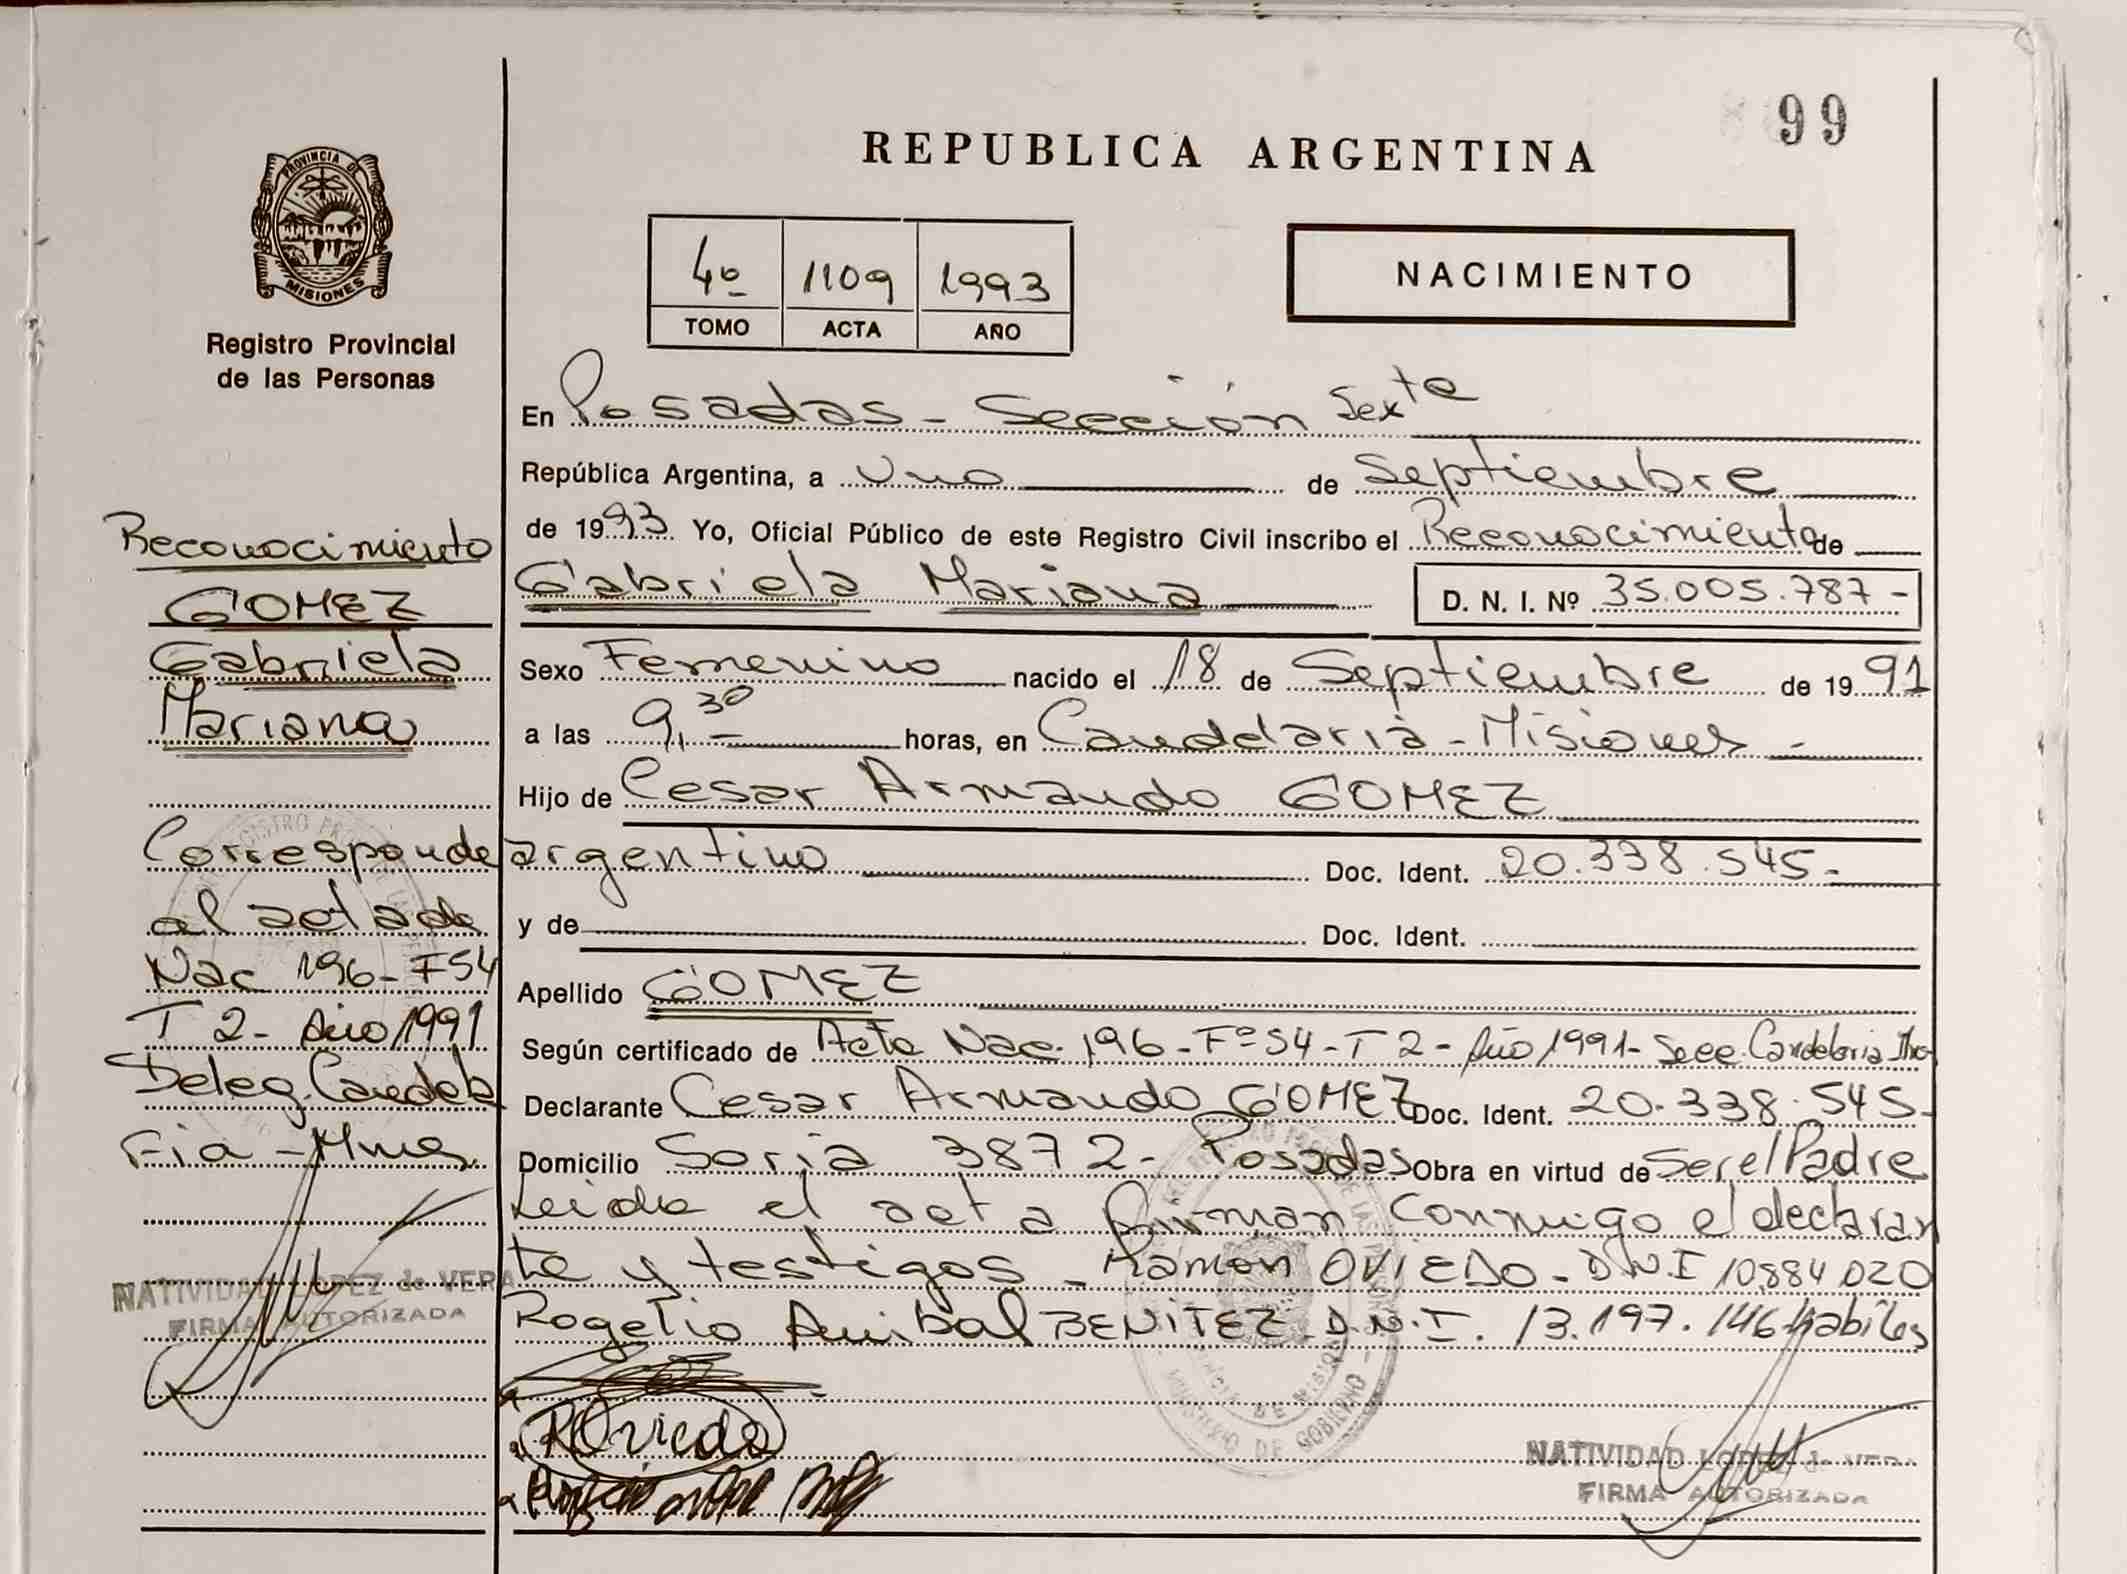 99
REPUBLICA ARGENTINA
PROVINCIA DE
MISIONES
Registro Provincial
de las Personas
4º 1109 1993
TOMO ACTA AÑO
NACIMIENTO
Reconocimiento
GOMEZ
Gabriela
Mariana
Corresponde
al acta de
Nac 196 - F54
T 2 - Año 1991
Deleg. Candela
ria - Mnes
NATIVIDAD LOPEZ de VERA
FIRMA AUTORIZADA
En Posadas - Sección Sexta
República Argentina, a Uno de Septiembre
de 1993. Yo, Oficial Público de este Registro Civil inscribo el Reconocimiento de
Gabriela Mariana D. N. I. Nº 35.005.787 -
Sexo Femenino nacido el 18 de Septiembre de 1991
a las 9,30 - horas, en Candelaria - Misiones -
Hijo de Cesar Armando GOMEZ
argentino Doc. Ident. 20.338.545 -
y de Doc. Ident.
Apellido GOMEZ
Según certificado de Acta Nac. 196 - Fº 54 - T 2 - Año 1991 - Secc. Candelaria
Declarante Cesar Armando GOMEZ Doc. Ident. 20.338.545 -
Domicilio Soria 3872 - Posadas Obra en virtud de Ser el Padre
Leida el acta firman conmigo el declaran
te y testigos - Ramón OVIEDO - D.N.I 10.884.020
Rogelio Anibal BENITEZ - D.N.I. 13.197.146 - habiles
ROviedo
NATIVIDAD LOPEZ de VERA
FIRMA AUTORIZADA
MINISTERIO DE GOBIERNO